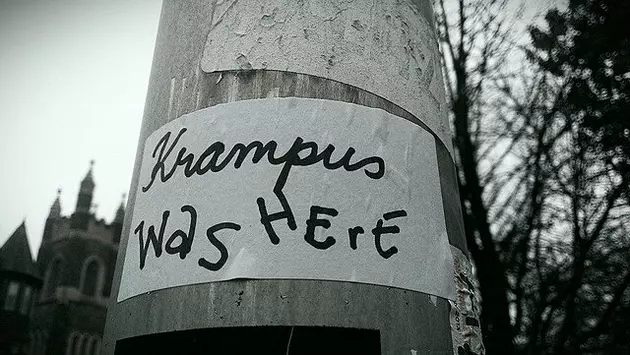 Krampus
was HErE